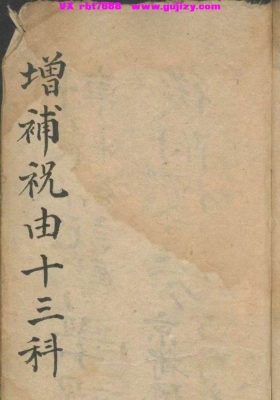 VX rbt7688 www.gujizy.com
增補祝由十三科